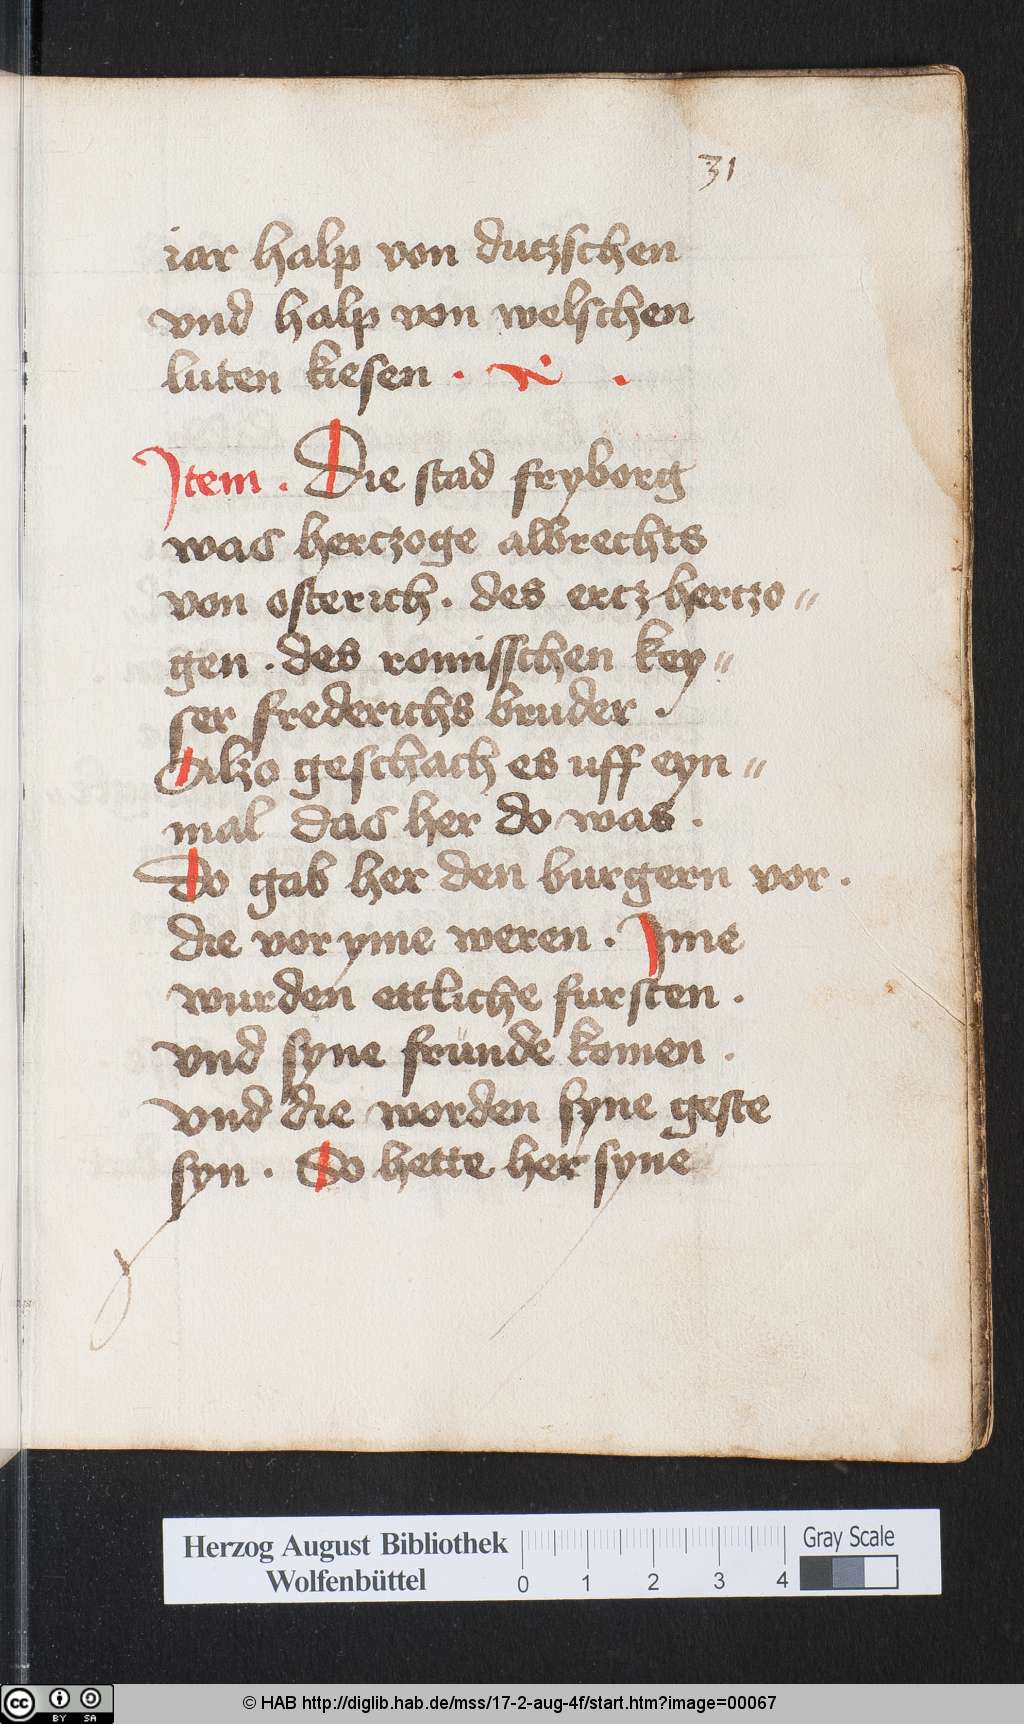 31
iar halp von dutzschen
vnd halp von welschen
luten kiesen .
Item . Die stad fryborg
was hertzoge albrechts
von osterich . des ertz hertzo〃
gen . des romisschen key〃
ser frederichs bruder .
Alzo geschach es uff eyn〃
mal das her do was .
Do gab her den burgern vor .
die vor yme weren . Ime
wurden ettliche fursten .
vnd syne fründe komen .
vnd die worden syne geste
syn . So hette her syne
Herzog August Bibliothek
Wolfenbüttel
0 1 2 3 4
Gray Scale
cc BY SA
© HAB http://diglib.hab.de/mss/17-2-aug-4f/start.htm?image=00067